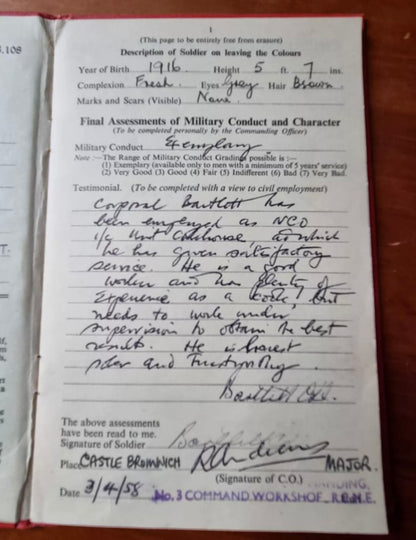 1
(This page to be entirely free from erasure)
Description of Soldier on leaving the Colours
Year of Birth 1916. Height 5 ft. 7 ins.
Complexion Fresh. Eyes Grey Hair Brown.
Marks and Scars (Visible) None
Final Assessments of Military Conduct and Character
(To be completed personally by the Commanding Officer)
Military Conduct Exemplary
Note :—The Range of Military Conduct Gradings possible is :—
(1) Exemplary (available only to men with a minimum of 5 years' service)
(2) Very Good (3) Good (4) Fair (5) Indifferent (6) Bad (7) Very Bad.
Testimonial. (To be completed with a view to civil employment)
Corporal Bartlett has
been employed as NCO
i/c Unit Cookhouse at which
he has given satisfactory
service. He is a good
worker and has plenty of
experience as a cook, but
needs to work under
supervision to obtain the best
results. He is honest
sober and trustworthy.
Bartlett
The above assessments
have been read to me.
Signature of Soldier
Place CASTLE BROMWICH MAJOR.
(Signature of C.O.)
Date 3/4/58 No. 3 COMMAND WORKSHOP R.E.M.E.